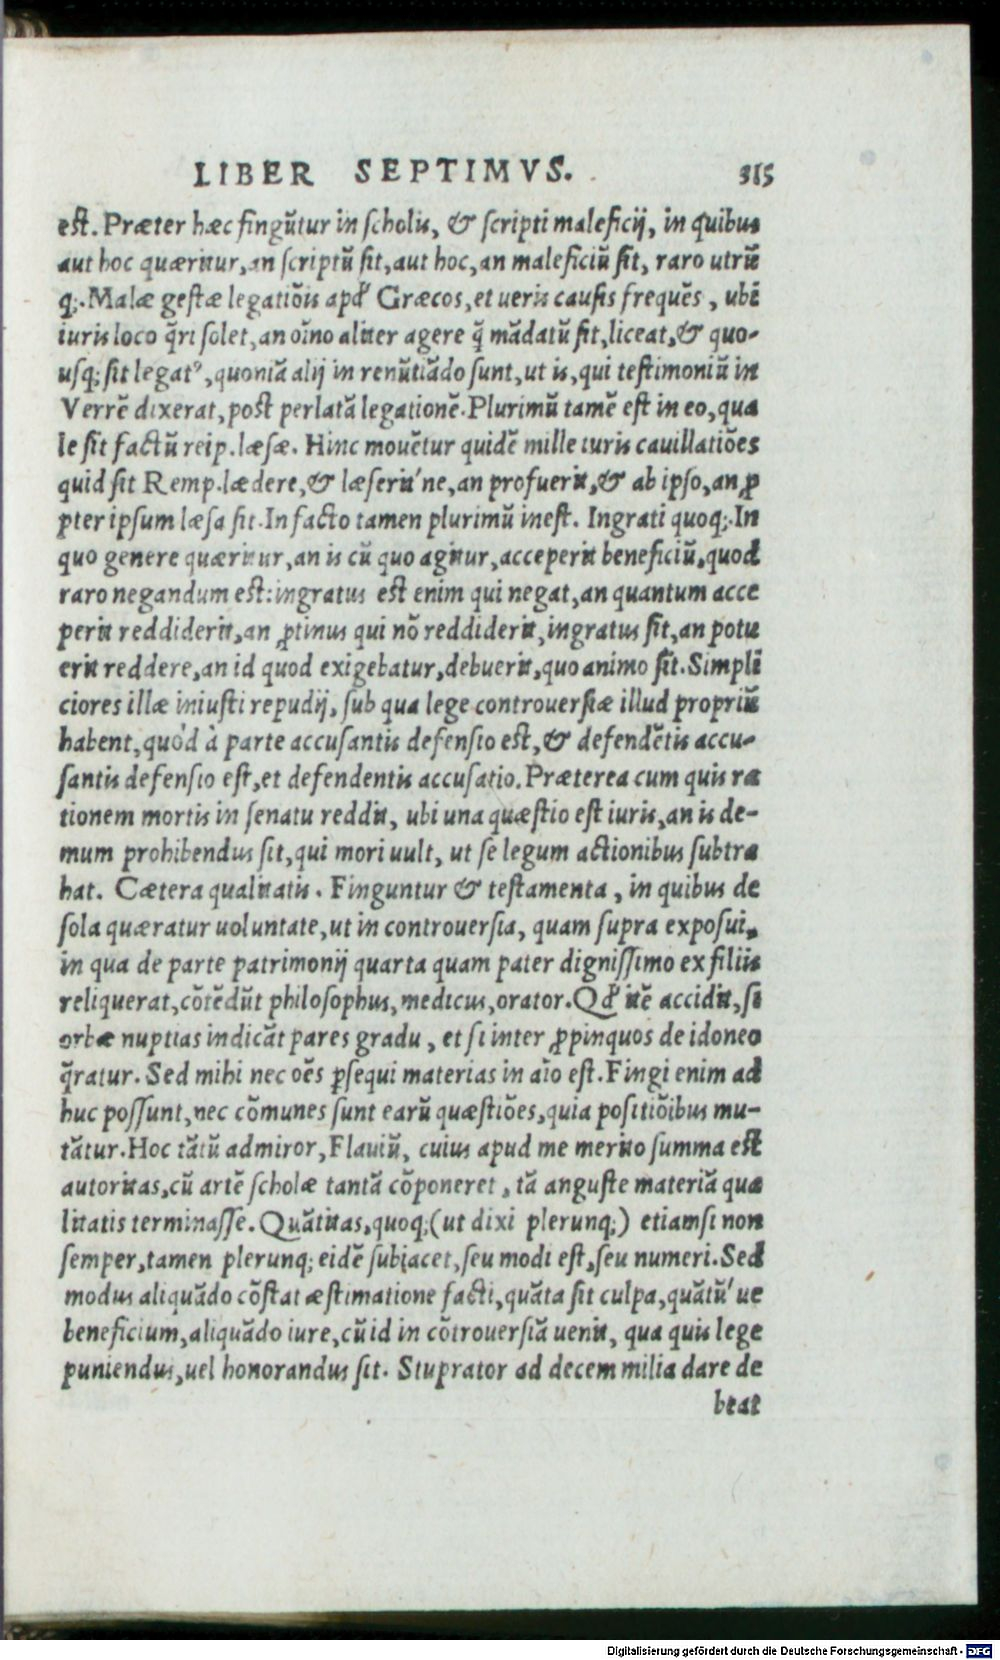 LIBER SEPTIMVS. 315
est. Præter hæc fingūtur in scholis, & scripti maleficij, in quibus
aut hoc quæritur, an scriptū sit, aut hoc, an maleficiū sit, raro utrū
q;. Malæ gestæ legatiōis apd' Græcos, et ueris causis frequēs, ubi
iuris loco q̄ri solet, an oīno aliter agere q̄ mādatū sit, liceat, & quo-
usq; sit legatꝰ, quoniā alij in renūtiādo sunt, ut is, qui testimoniū in
Verrē dixerat, post perlatā legationē. Plurimū tamē est in eo, qua
le sit factū reip. læsæ. Hinc mouētur quidē mille iuris cauillatiōes
quid sit Remp. lædere, & læserit'ne, an profuerit, & ab ipso, an ꝓ
pter ipsum læsa sit. In facto tamen plurimū inest. Ingrati quoq;. In
quo genere quæritur, an is cū quo agitur, acceperit beneficiū, quod
raro negandum est: ingratus est enim qui negat, an quantum acce
perit reddiderit, an ꝓtinus qui nō reddiderit, ingratus sit, an potu
erit reddere, an id quod exigebatur, debuerit, quo animo sit. Simpli
ciores illæ iniusti repudij, sub qua lege controuersiæ illud propriū
habent, quòd à parte accusantis defensio est, & defendētis accu-
santis defensio est, et defendentis accusatio. Præterea cum quis ra
tionem mortis in senatu reddit, ubi una quæstio est iuris, an is de-
mum prohibendus sit, qui mori uult, ut se legum actionibus subtra
hat. Cætera qualitatis. Finguntur & testamenta, in quibus de
sola quæratur uoluntate, ut in controuersia, quam supra exposui,
in qua de parte patrimonij quarta quam pater dignissimo ex filiis
reliquerat, cōtēdūt philosophus, medicus, orator. Qd' itē accidit, si
orbæ nuptias indicāt pares gradu, et si inter ꝓpinquos de idoneo
q̄ratur. Sed mihi nec oēs ꝑsequi materias in aīo est. Fingi enim ad
huc possunt, nec cōmunes sunt earū quæstiōes, quia positiōibus mu-
tātur. Hoc tātū admiror, Flauiū, cuius apud me merito summa est
autoritas, cū artē scholæ tantā cōponeret, tā anguste materiā qua
litatis terminasse. Quātitas, quoq; (ut dixi plerunq;) etiamsi non
semper, tamen plerunq; eidē subiacet, seu modi est, seu numeri. Sed
modus aliquādo cōstat æstimatione facti, quāta sit culpa, quātū'ue
beneficium, aliquādo iure, cū id in cōtrouersiā uenit, qua quis lege
puniendus, uel honorandus sit. Stuprator ad decem milia dare de
beat
Digitalisierung gefördert durch die Deutsche Forschungsgemeinschaft - DFG